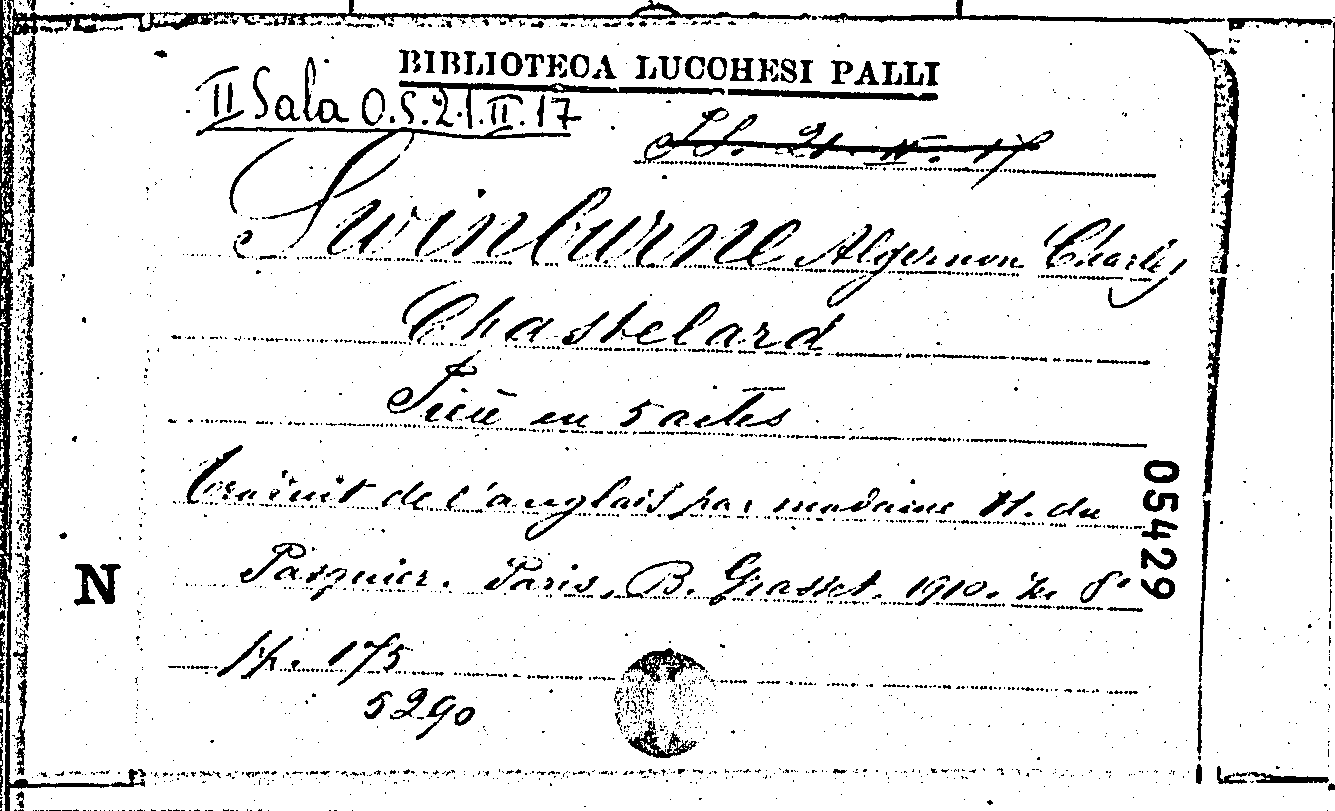 BIBLIOTECA LUCCHESI PALLI
II Sala O.S.21.II.17
S.S. 21. II. 17
Swinburne Algernon Charles
Chastelard
Pièce en 5 actes
Traduit de l'anglais par madame H. du
Pasquier. Paris, B. Grasset. 1910. in 8°
pp. 175
5290
N
05429